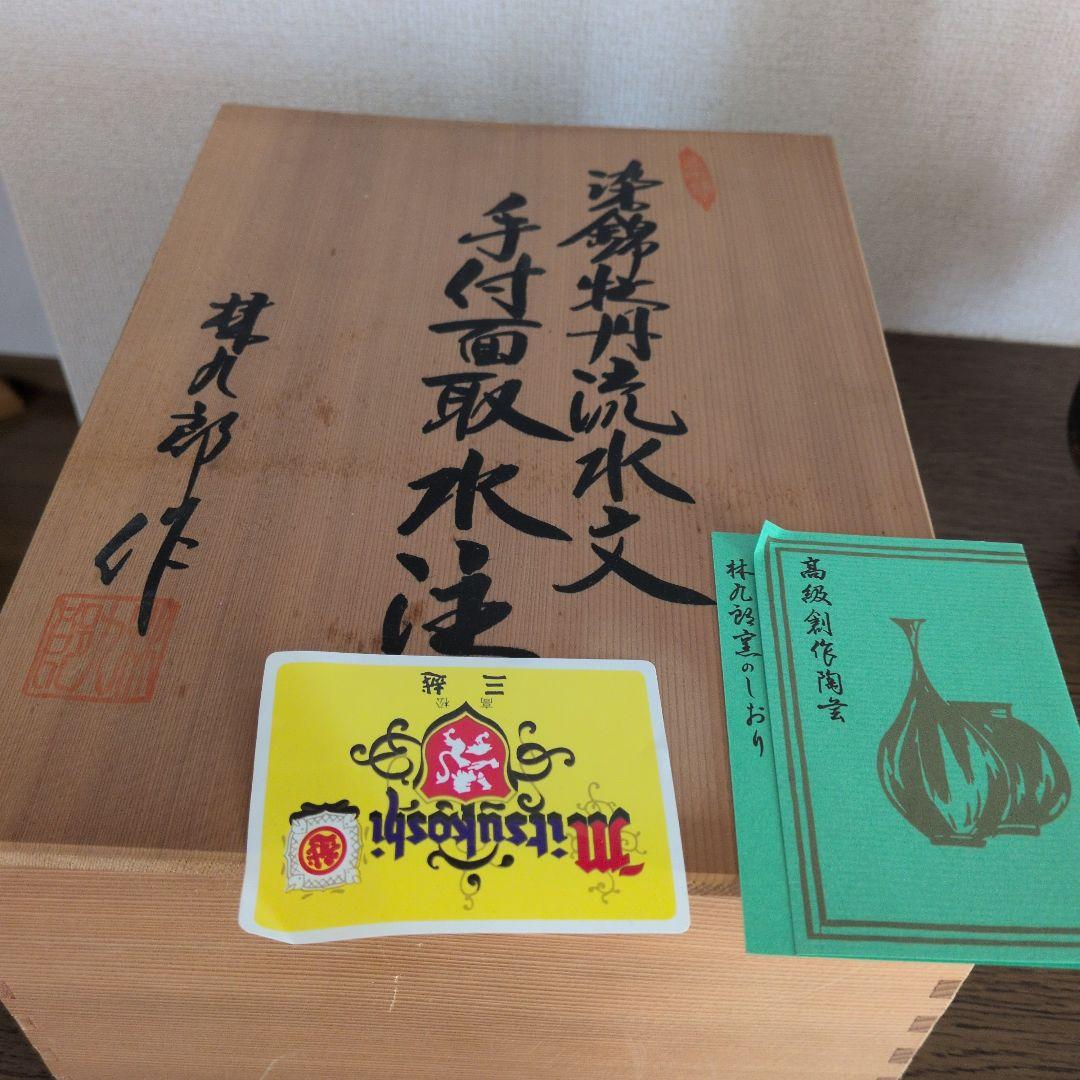 染錦牡丹流水文
手付面取水注
林九郎作
三越
高松
Mitsukoshi
越
高級創作陶芸
林九郎窯のしおり